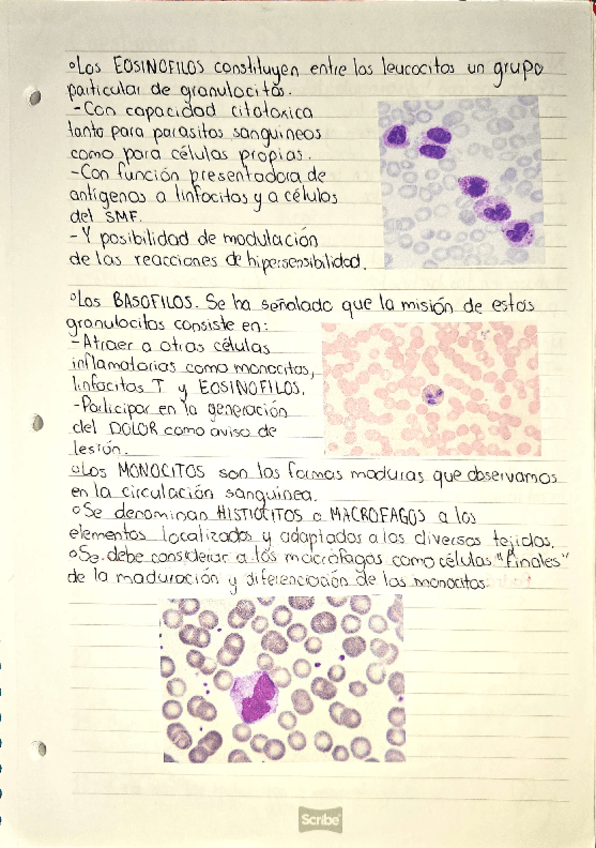 °Los EOSINOFILOS constituyen entre los leucocitos un grupo
particular de granulocitos.
-Con capacidad citotoxica
tanto para parasitos sanguineos
como para células propias.
-Con función presentadora de
antigenos a linfocitos y a células
del SMF.
-Y posibilidad de modulación
de las reacciones de hipersensibilidad.
°Los BASOFILOS. Se ha señalado que la misión de estos
granulocitos consiste en:
-Atraer a otras células
inflamatorias como monocitos,
linfocitos T y EOSINOFILOS.
-Participar en la generación
del DOLOR como aviso de
lesión.
°Los MONOCITOS son las formas maduras que observamos
en la circulación sanguinea.
°Se denominan HISTIOCITOS o MACROFAGOS a los
elementos localizados y adaptados a los diversos tejidos.
°Se debe considerar a los macrófagos como células "finales"
de la maduración y diferenciación de los monocitos.
Scribe